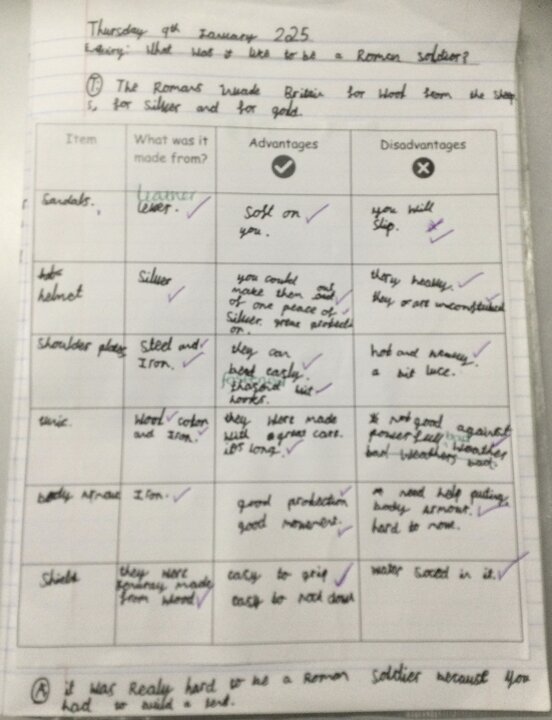 Thursday 9th January 2025
Enkiry: What was it like to be a Roman soldier?
T The Romans Invade Britain for wool from the sheep
s, for Silver and for gold.
Item What was it made from? Advantages Disadvantages
Sandals. Leather
soft on
you.
you will
slip.
helmet
Silver
you could
make them out
of one peace of
Silver. great
on.
they heavy.
they or are
Shoulder plates
Steel and
Iron.
they can
bend easly.
hooks.
hot and heavey.
a bit luce.
tunic.
Wool coton
and Iron.
they were made
with a great care.
its long.
not good against
powerfull bad weather
bad
body armour
Iron.
good protection
good movement.
need help puting
body armour.
hard to move.
Shield
they were
made
from wood
easy to grip
easy to
water soced in it.
A it was Realy hard to be a Roman Soldier because you
had to build a tent.